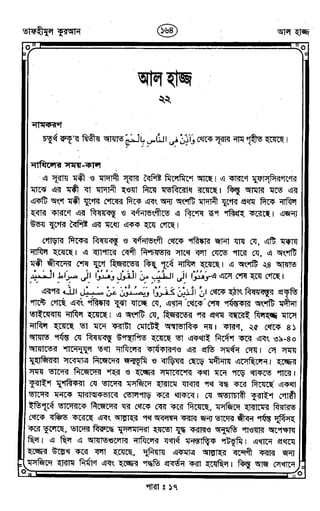 তাফহীমুল কুরআন
১৬৪
আল হাজ্জ
আল হাজ্জ
২২
নামকরণ
চতুর্থ রুকূ'র দ্বিতীয় আয়াত وَأَذِّنْ فِي النَّاسِ بِالْحَجِّ থেকে সূরার নাম গৃহীত হয়েছে।
নাযিলের সময়-কাল
এ সূরায় মক্কী ও মাদানী সূরার বৈশিষ্ট মিলেমিশে আছে। এ কারণে মুফাস্‌সিরগণের
মাঝে এর মক্কী বা মাদানী হওয়া নিয়ে মতবিরোধ রয়েছে। কিন্তু আমার মতে এর
একটি অংশ মক্কী যুগের শেষের দিকে এবং অন্য অংশটি মাদানী যুগের প্রথম দিকে নাযিল
হবার কারণে এর বিষয়বস্তু ও বর্ণনাভংগীতে এ বিশেষ রূপ পরিগ্রহ করেছে। এজন্য
উভয় যুগের বৈশিষ্ট এর মধ্যে একক হয়ে গেছে।
গোড়ার দিকের বিষয়বস্তু ও বর্ণনাভংগী থেকে পরিষ্কার জানা যায় যে, এটি মক্কায়
নাযিল হয়েছে। এ ব্যাপারে বেশী নিশ্চয়তার সাথে বলা যেতে পারে যে, এ অংশটি
মক্কী জীবনের শেষ যুগে হিজরতের কিছু পূর্বে নাযিল হয়েছে। এ অংশটি ২৪ আয়াত
وَهُدُوا إِلَى الطَّيِّبِ مِنَ الْقَوْلِ وَهُدُوا إِلَى صِرَاطِ الْحَمِيدِ এ এসে শেষ হয়ে গেছে।
এরপর إِنَّ الَّذِينَ كَفَرُوا وَيَصُدُّونَ عَنْ سَبِيلِ اللَّهِ থেকে হঠাৎ বিষয়বস্তুর প্রকৃতি
পাল্টে গেছে এবং পরিষ্কার বুঝা যায় যে, এখান থেকে শেষ পর্যন্তকার অংশটি মদীনা
তাইয়েবায় নাযিল হয়েছে। এ অংশটি যে, হিজরতের পর প্রথম বছরেই যিলহজ্জ মাসে
নাযিল হয়েছে তা মনে করাটা মোটেই অস্বাভাবিক নয়। কারণ, ২৫ থেকে ৪১
আয়াত পর্যন্ত যে বিষয়বস্তু উপস্থাপিত হয়েছে তা একথাই নির্দেশ করে এবং ৩৯-৪০
আয়াতের শানেনুযুল তথা নাযিলের কার্যকারণও এর প্রতি সমর্থন দেয়। সে সময়
মুহাজিররা সবেমাত্র নিজেদের জন্মভূমি ও বাড়িঘর ছেড়ে মদীনায় এসেছিলেন। হজ্জের
সময় তাদের নিজেদের শহর ও হজ্জের সমাবেশের কথা মনে পড়ে থাকতে পারে।
কুরাইশ মুশরিকরা যে তাদের মসজিদে হারামে যাবার পথ বন্ধ করে দিয়েছে একথা
তাদের মনকে মারাত্মকভাবে তোলপাড় করে থাকবে। যে অত্যাচারী কুরাইশ গোষ্ঠী
ইতিপূর্বে তাদেরকে নিজেদের ঘর থেকে বের করে দিয়েছে, মসজিদে হারামের যিয়ারত
থেকে বঞ্চিত করেছে এবং আল্লাহর পথ অবলম্বন করার জন্য তাদের জীবন পর্যন্ত দুর্বিসহ
করে তুলেছে, তাদের বিরুদ্ধে মুসলমানরা হয়তো যুদ্ধ করারও অনুমতি পাওয়ার অপেক্ষায়
ছিল। এ ছিল এ আয়াতগুলোর নাযিলের যথার্থ মনস্তাত্বিক পটভূমি। এখানে প্রথমে
হজ্জের উল্লেখ করে বলা হয়েছে, দুনিয়ায় একমাত্র আল্লাহর বন্দেগী করার জন্য
মসজিদে হারাম নির্মাণ এবং হজ্জের পদ্ধতি প্রবর্তন করা হয়েছিল। কিন্তু আজ সেখানে
পারা : ১৭